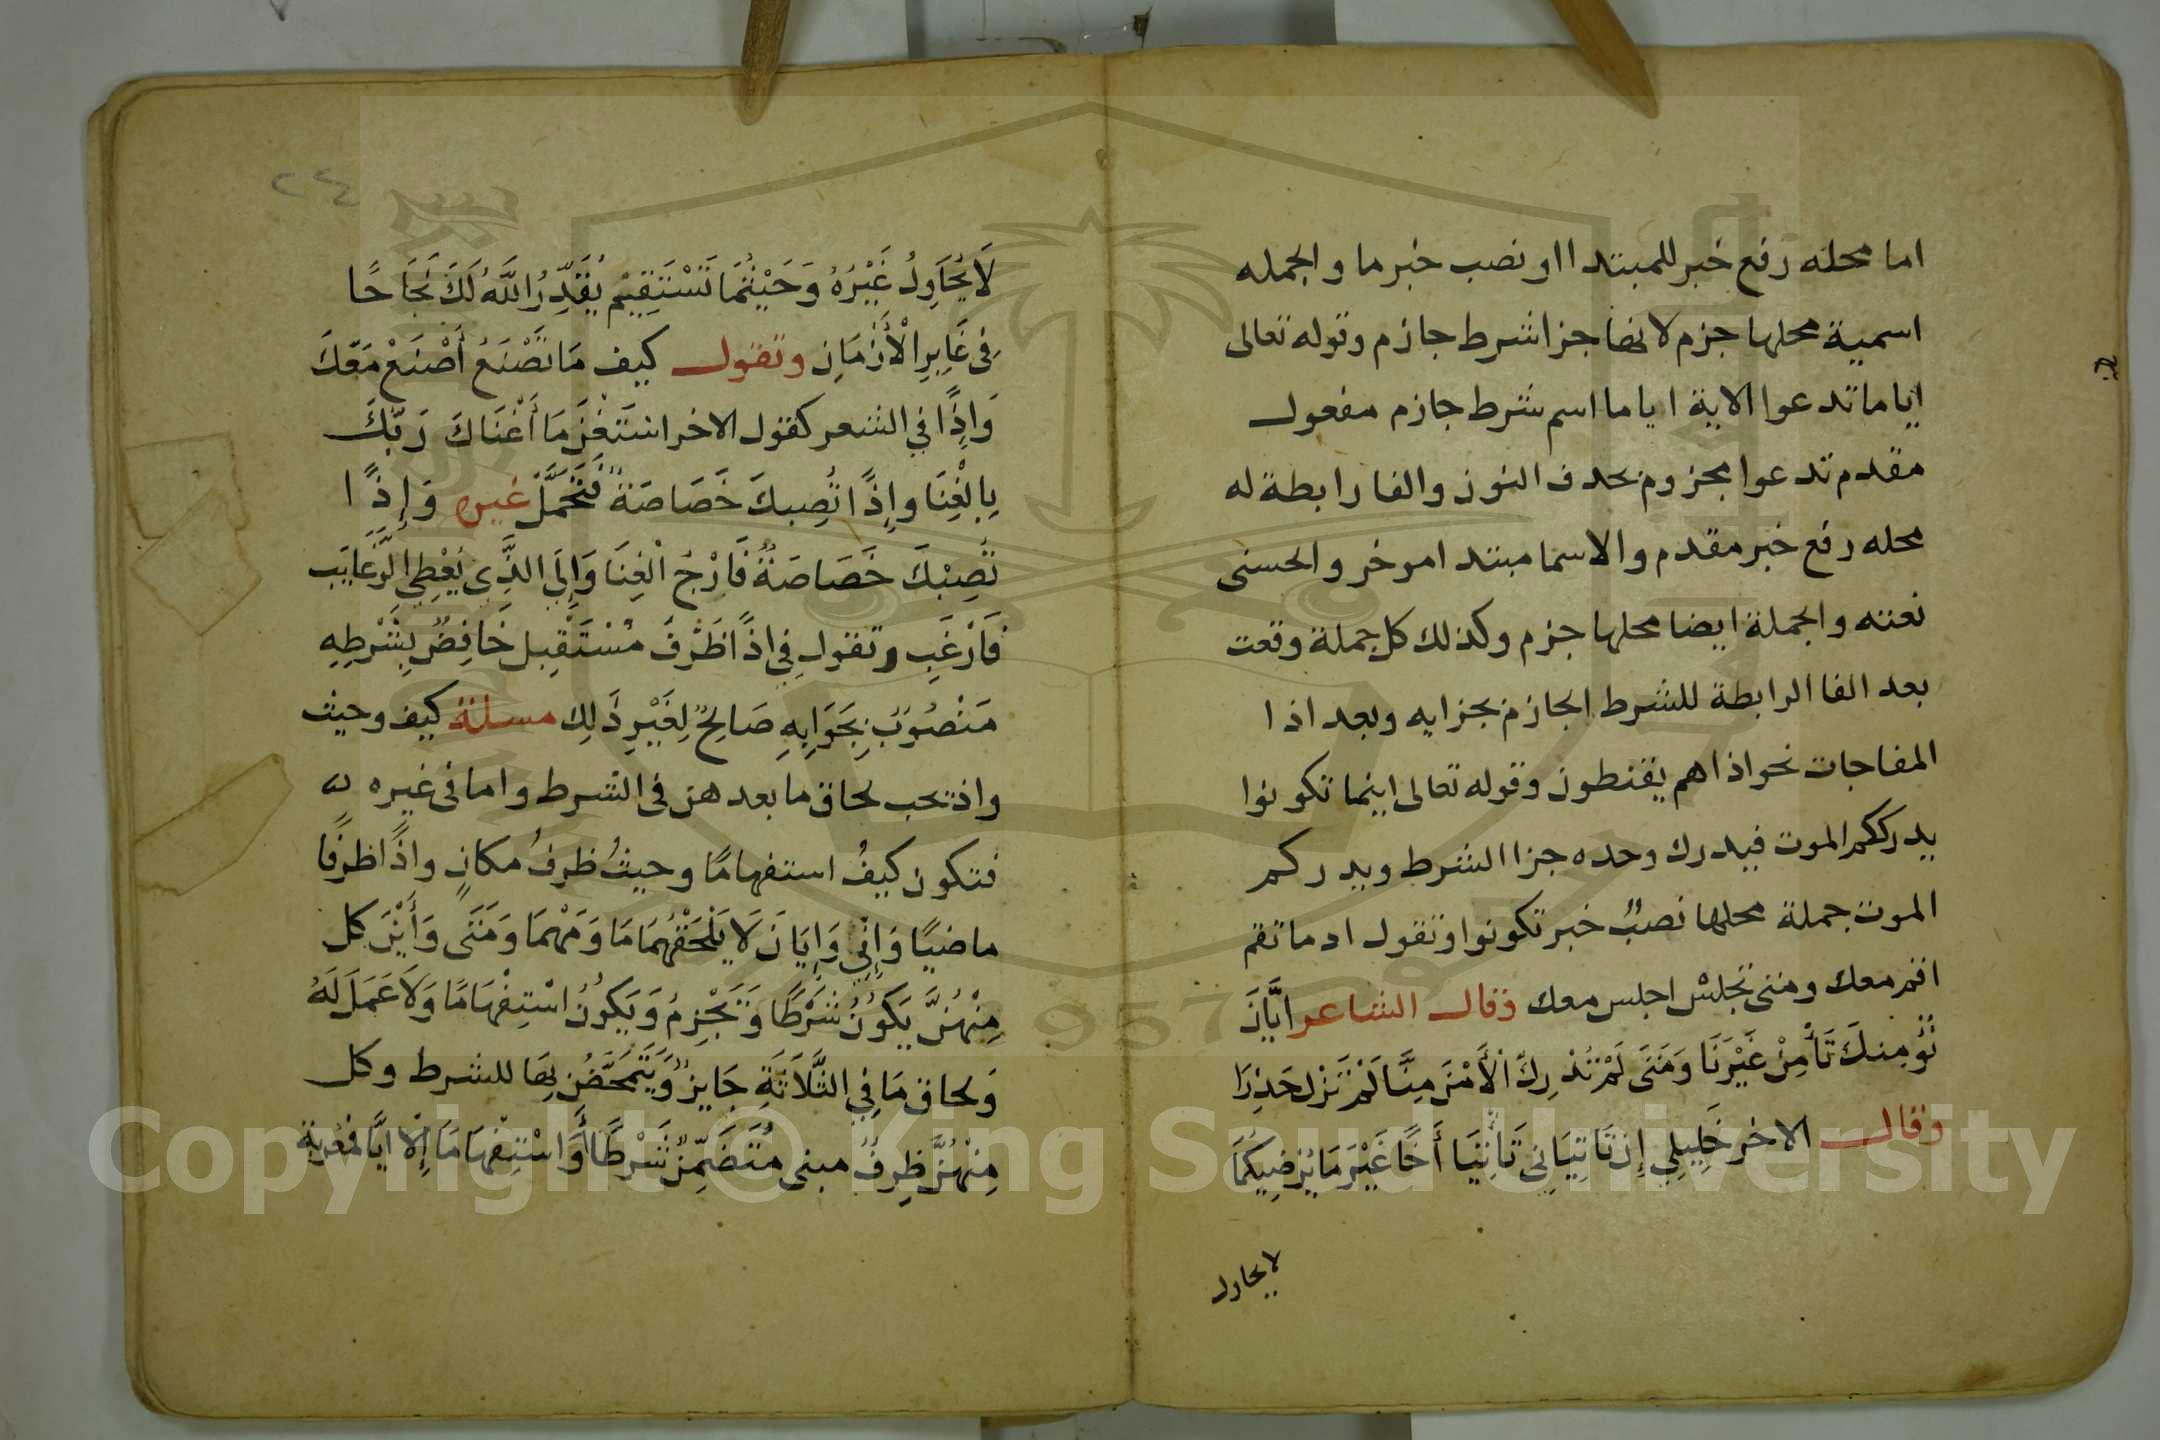 اما محله رفع خبر للمبتدا او نصب خبر ما والجمله
اسمية محلها جزم لانها جزا شرط جازم وقوله تعالى
اياما تدعوا الاية اياما اسم شرط جازم مفعول
مقدم تدعوا مجزوم بحذف النون والفا رابطة له
محله رفع خبر مقدم والاسما مبتدا موخر والحسنى
نعته والجملة ايضا محلها جزم وكذلك كل جملة وقعت
بعد الفا الرابطة للشرط الجازم بجزايه وبعد اذا
المفاجات نحو اذا هم يقنطون وقوله تعالى اينما تكونوا
يدرككم الموت فيدرك وحده جزا الشرط ويدرككم
الموت جملة محلها نصبٌ خبر تكونوا وتقول اذ ما تقم
اقم معك ومتى تجلس اجلس معك وقال الشاعر ايَّانَ
نُؤْمِنكَ تَأْمَنْ غَيْرَنَا وَمَتَى لَمْ تُدْرِكِ الْأَمْنَ مِنَّا لَمْ تَزَلْ حَذِرَا
وقال الاخر خَلِيلي إِن تَاتِيَانِي تَأْتِيَا أَخًا غَيْرَ مَا يُرْضِيكُمَا
لا يحاول
٢٤
لَا يُحَاوِلُ غَيْرُهُ وَحَيْثُمَا تَسْتَقِيمْ يُقَدِّرُ اللَّهُ لَكَ نَجَاحًا
فِى غَابِرِ الْأَزْمَانِ وتقول كيف مَا تَصْنَعُ أَصْنَعْ مَعَكَ
وَاِذًا في الشعر كقول الاخر استَغْنِ مَا أَغْنَاكَ رَبّكَ
بِالْغِنَا وإِذًا تُصِبكَ خَصَاصَةٌ فَتَحَمَّل غيره وَإِذًا
تُصِبْكَ خَصَاصَةٌ فَارْجُ الْغِنَا وَإِلَى الذِّي يُعْطِي الرَّغَايَب
فَارْغَبِ وتقول فِي اذًا ظَرْفَ مُسْتَقْبِل خَافِضٌ بِشَرْطِهِ
مَنْصُوبٌ بِجَوَابِهِ صَالِحٌ لِغَيْرِ ذَلِك مسلة كيف وحيث
واذ تجب لحاق ما بعدهن فى الشرط واما فى غيره
فتكون كيفُ استفهامًا وحيثُ ظرفُ مكانٍ واذًا ظرفًا
ماضيًا وَاِنِّي وَاِيَانَ لَا يَلْحَقْهُمَا مَا وَمَهْمَا وَمَتَى وَأَيْنَ كل
مِنْهُنَّ يَكُونُ شَرْطًا وَتَجْزِمُ وَيَكُونُ اسْتِفْهَامًا وَلَا عَمَلَ لَهُ
وَلحاق مَا فِي الثَّلَاثَةِ جَايِزٌ وَيَتَمَحَّضُ بِهَا للشرط وكل
مِنهُنَّ ظِرفُ مبنى مُتَضَمِّنٌ شَرْطًا أَوَ اسْتِفْهَامًا إِلّا ايًّا فمُعْرَبة
Copyright © King Saud University
1957